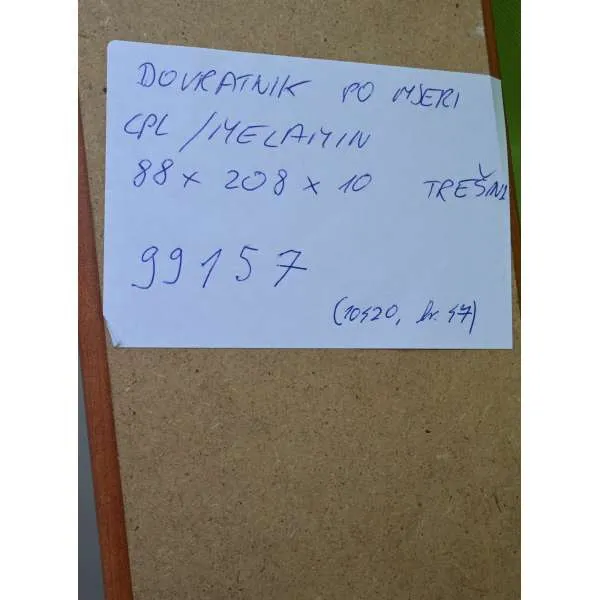 DOVRATNIK PO MJERI
CPL / MELAMIN
88 x 208 x 10 TREŠNJ
99157
(10420, br. 47)